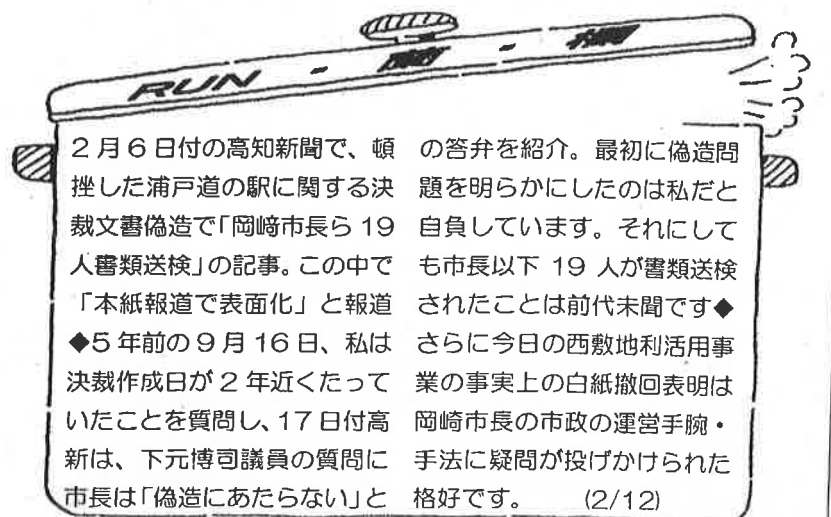 RUN - -
2月6日付の高知新聞で、頓
挫した浦戸道の駅に関する決
裁文書偽造で「岡﨑市長ら19
人書類送検」の記事。この中で
「本紙報道で表面化」と報道
◆5年前の9月16日、私は
決裁作成日が2年近くたって
いたことを質問し、17日付高
新は、下元博司議員の質問に
市長は「偽造にあたらない」と
の答弁を紹介。最初に偽造問
題を明らかにしたのは私だと
自負しています。それにして
も市長以下 19 人が書類送検
されたことは前代未聞です◆
さらに今日の西敷地利活用事
業の事実上の白紙撤回表明は
岡﨑市長の市政の運営手腕・
手法に疑問が投げかけられた
格好です。 (2/12)